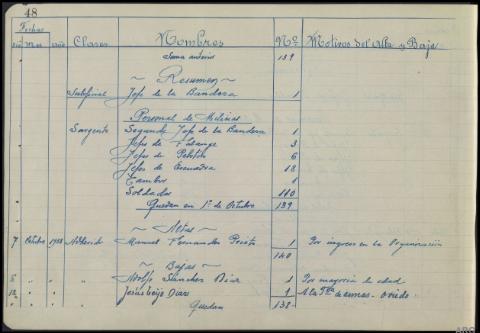 48
Fechas
Dia Mes Año Clases Nombres Nº Motivos del Alta y Baja
Suma anterior 139
~ Resumen ~
Subofinal Jefe de la Bandera 1
Personal de Milicias
Sargento Segundo Jefe de la Bandera 1
Jefes de Falange 3
Jefes de Pelotón 6
Jefes de Escuadra 18
Tambor 1
Soldados 110
Quedan en 1º de Octubre 139
~ Altas ~
7 Octubre 1938 Manuel Fernandez Prieto 1 Por ingreso en la Organización
140
~ Bajas ~
5 " " " Adolfo Sánchez Diaz 1 Por mayoria de edad
12 " " " Jesús Diaz 1 A la de armas - Oviedo -
Quedan 138